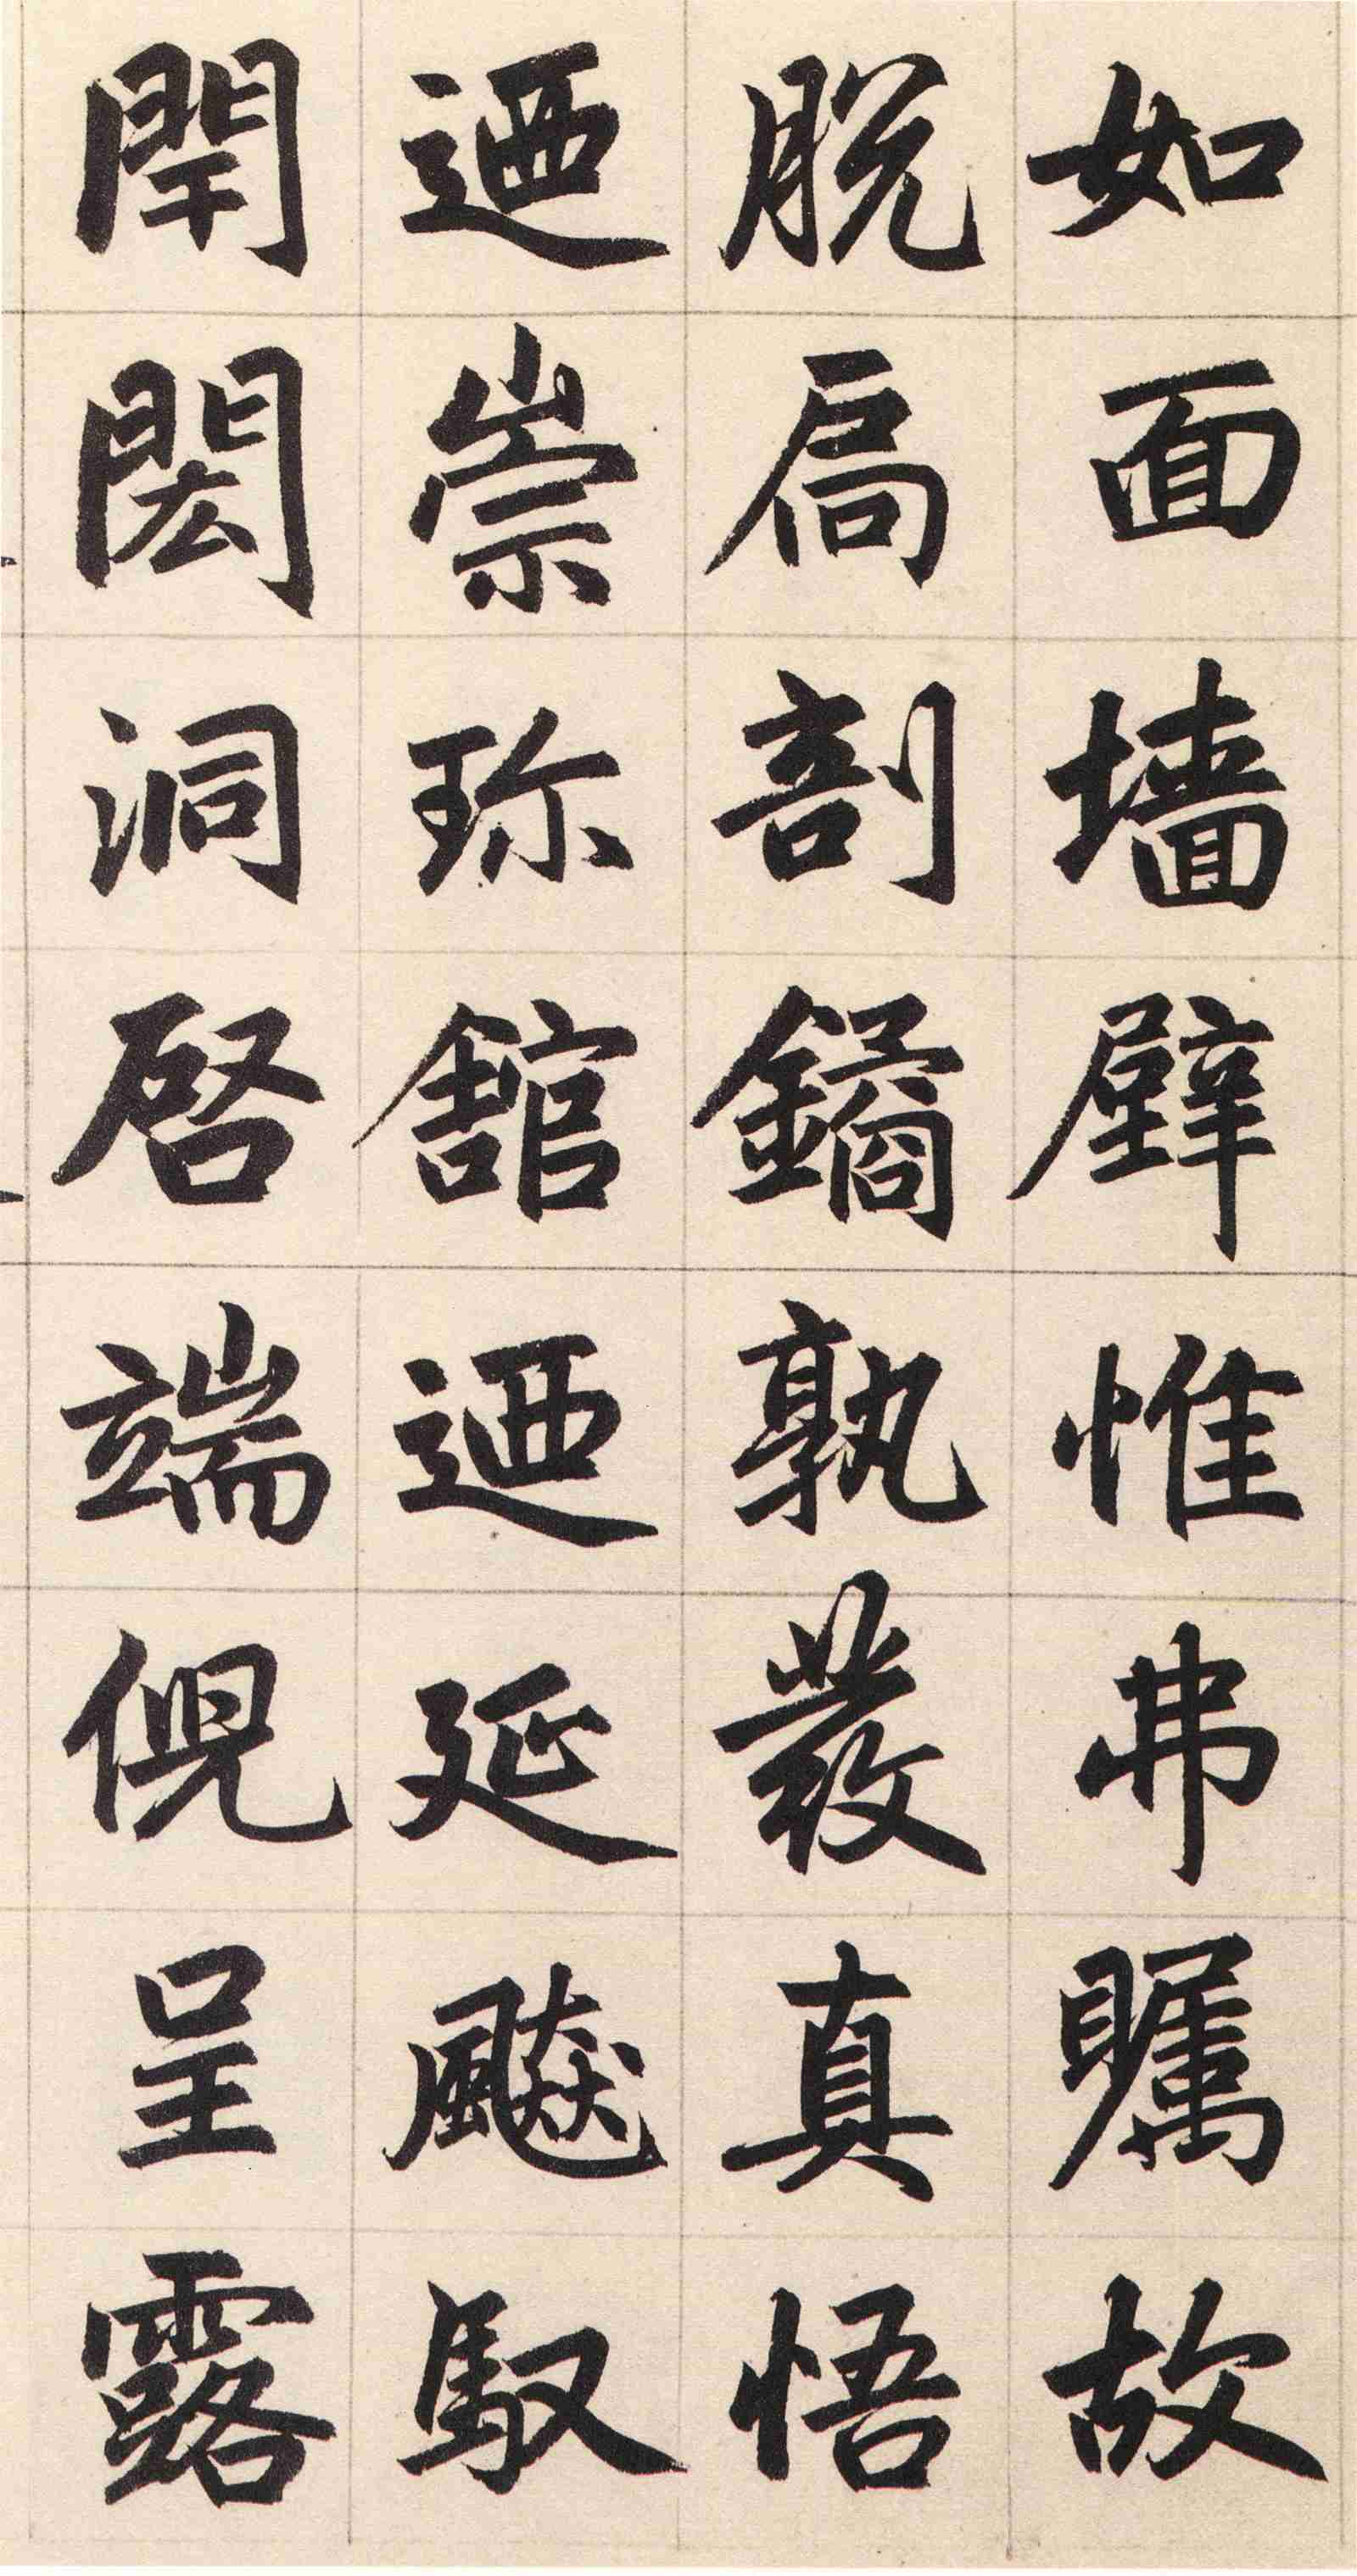 如面墙壁惟弗矚故
脱扃剖鐍孰發真悟
迺崇珎舘迺延飈馭
開閎洞啓端倪呈露